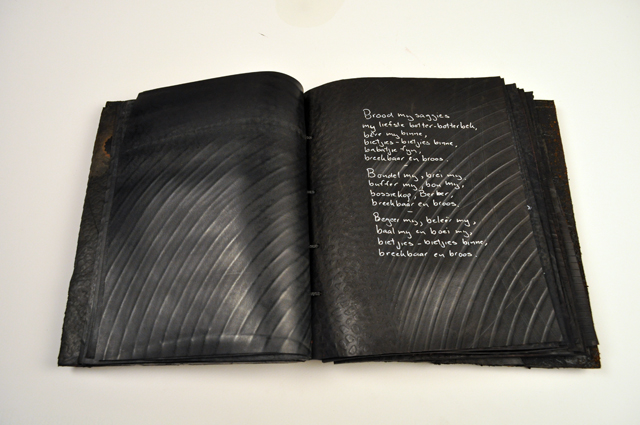 Brood my saggies
my liefste botter-botterbek,
bêre my binne,
bietjies-bietjies binne,
babatjie fyn,
breekbaar en broos.
Bondel my, brei my,
buffer my, bou my,
bossiekop, Berber,
breekbaar en broos.
Begeer my, beleër my,
baal my en boei my,
bietjies-bietjies binne,
breekbaar en broos.